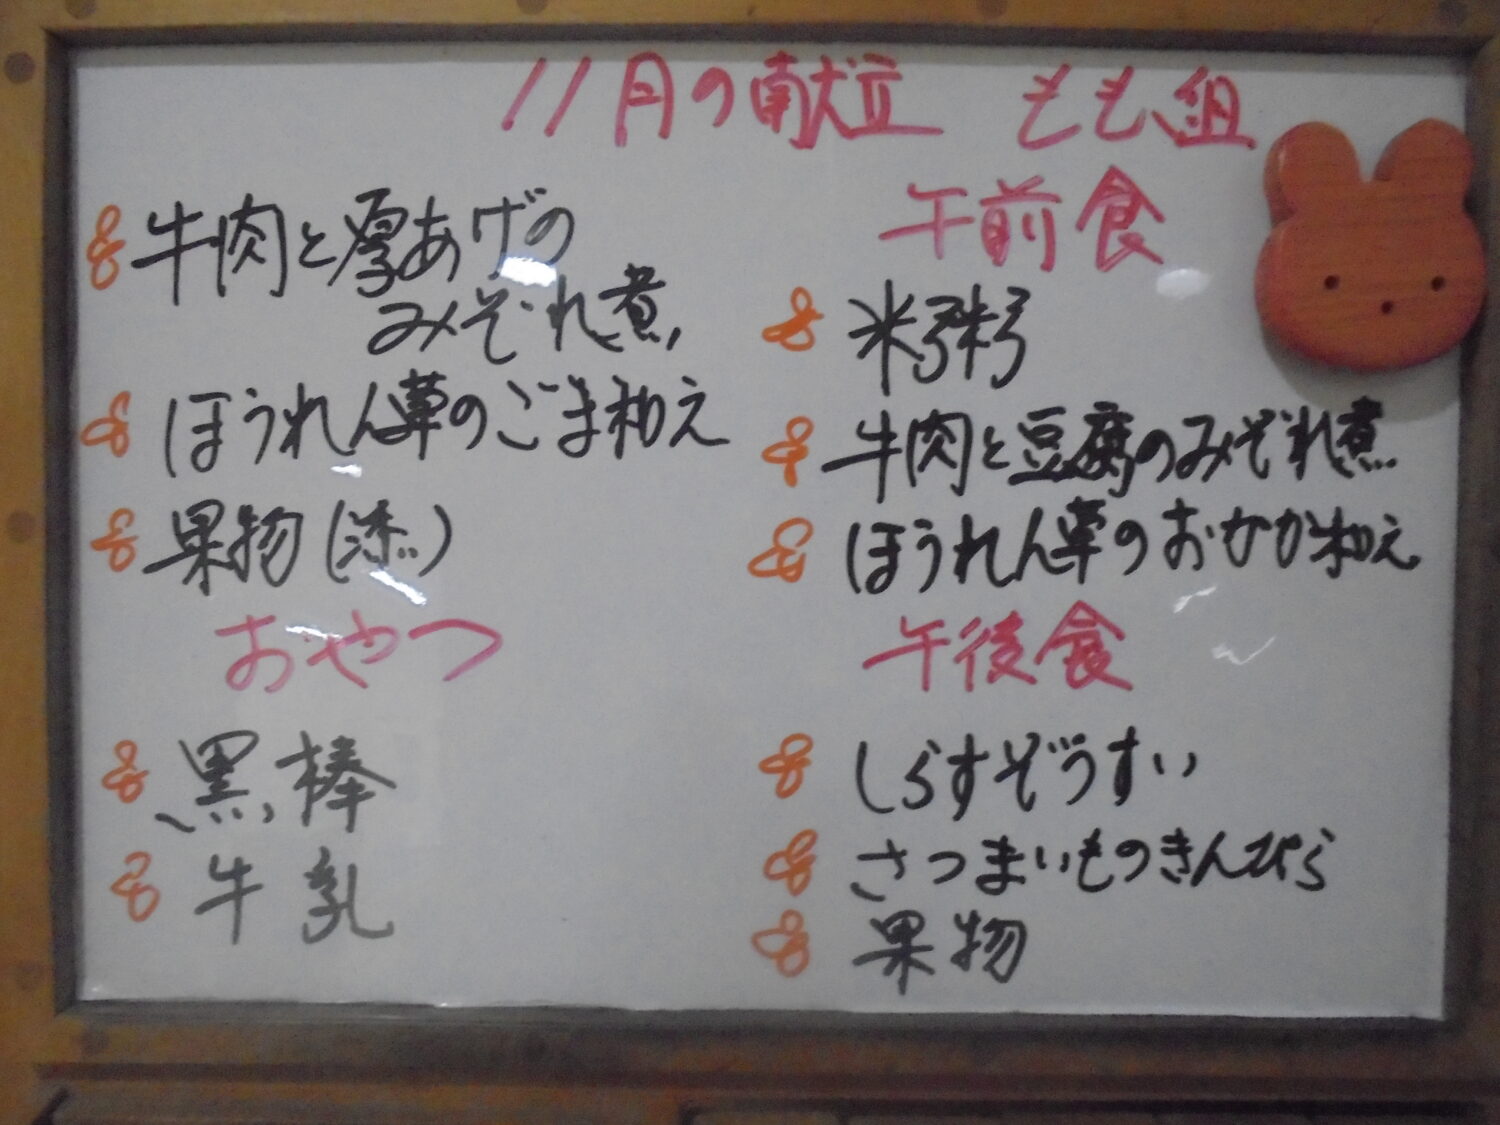 11月の献立 もも組
牛肉と厚あげの
みぞれ煮
ほうれん草のごま和え
果物(添)
おやつ
黒棒
牛乳
午前食
米粥
牛肉と豆腐のみぞれ煮
ほうれん草のおかか和え
午後食
しらすぞうすい
さつまいものきんぴら
果物